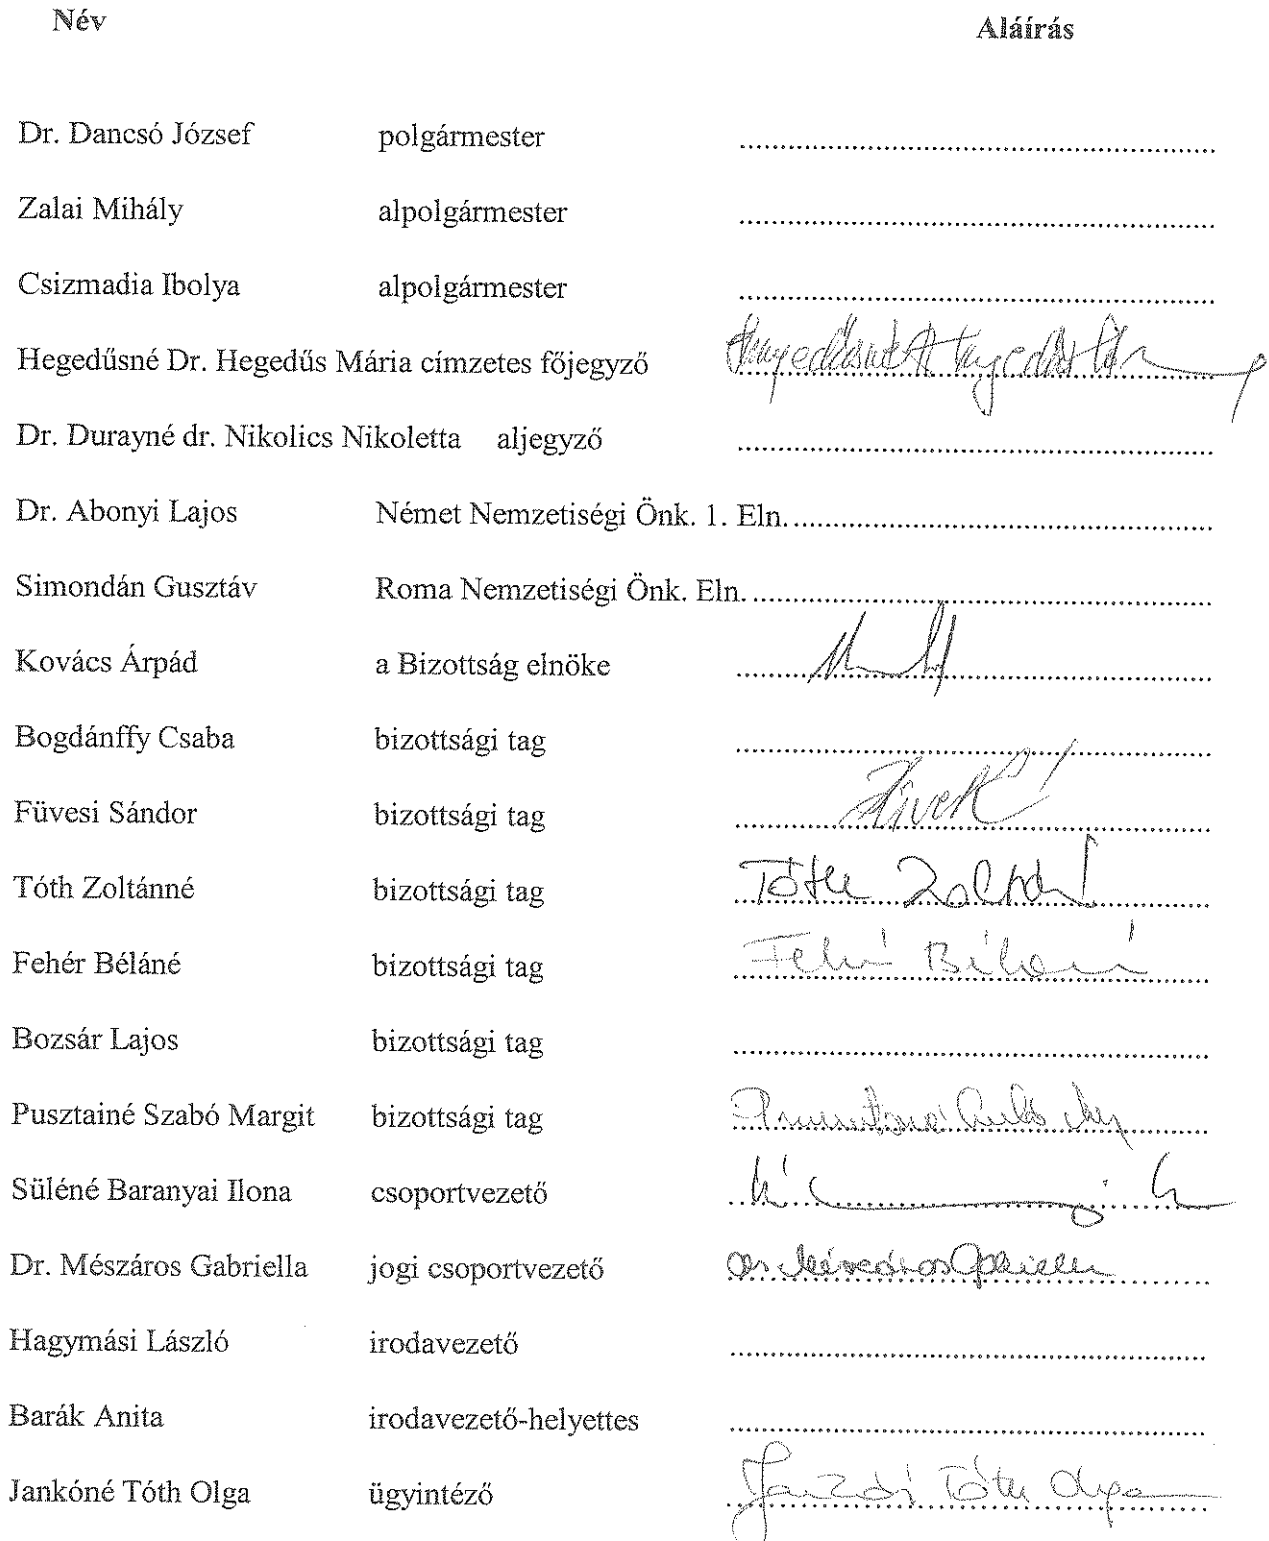 Név Aláírás
Dr. Dancsó József polgármester ........................
Zalai Mihály alpolgármester ........................
Csizmadia Ibolya alpolgármester ........................
Hegedűsné Dr. Hegedűs Mária címzetes főjegyző ........................
Dr. Durayné dr. Nikolics Nikoletta aljegyző ........................
Dr. Abonyi Lajos Német Nemzetiségi Önk. 1. Eln. ........................
Simondán Gusztáv Roma Nemzetiségi Önk. Eln. ........................
Kovács Árpád a Bizottság elnöke ........................
Bogdánffy Csaba bizottsági tag ........................
Füvesi Sándor bizottsági tag ........................
Tóth Zoltánné bizottsági tag Tóth Zoltánné
Fehér Béláné bizottsági tag Fehér Béláné
Bozsár Lajos bizottsági tag ........................
Pusztainé Szabó Margit bizottsági tag ........................
Süléné Baranyai Ilona csoportvezető ........................
Dr. Mészáros Gabriella jogi csoportvezető dr Mészáros Gabriella
Hagymási László irodavezető ........................
Barák Anita irodavezető-helyettes ........................
Jankóné Tóth Olga ügyintéző Tóth Olga